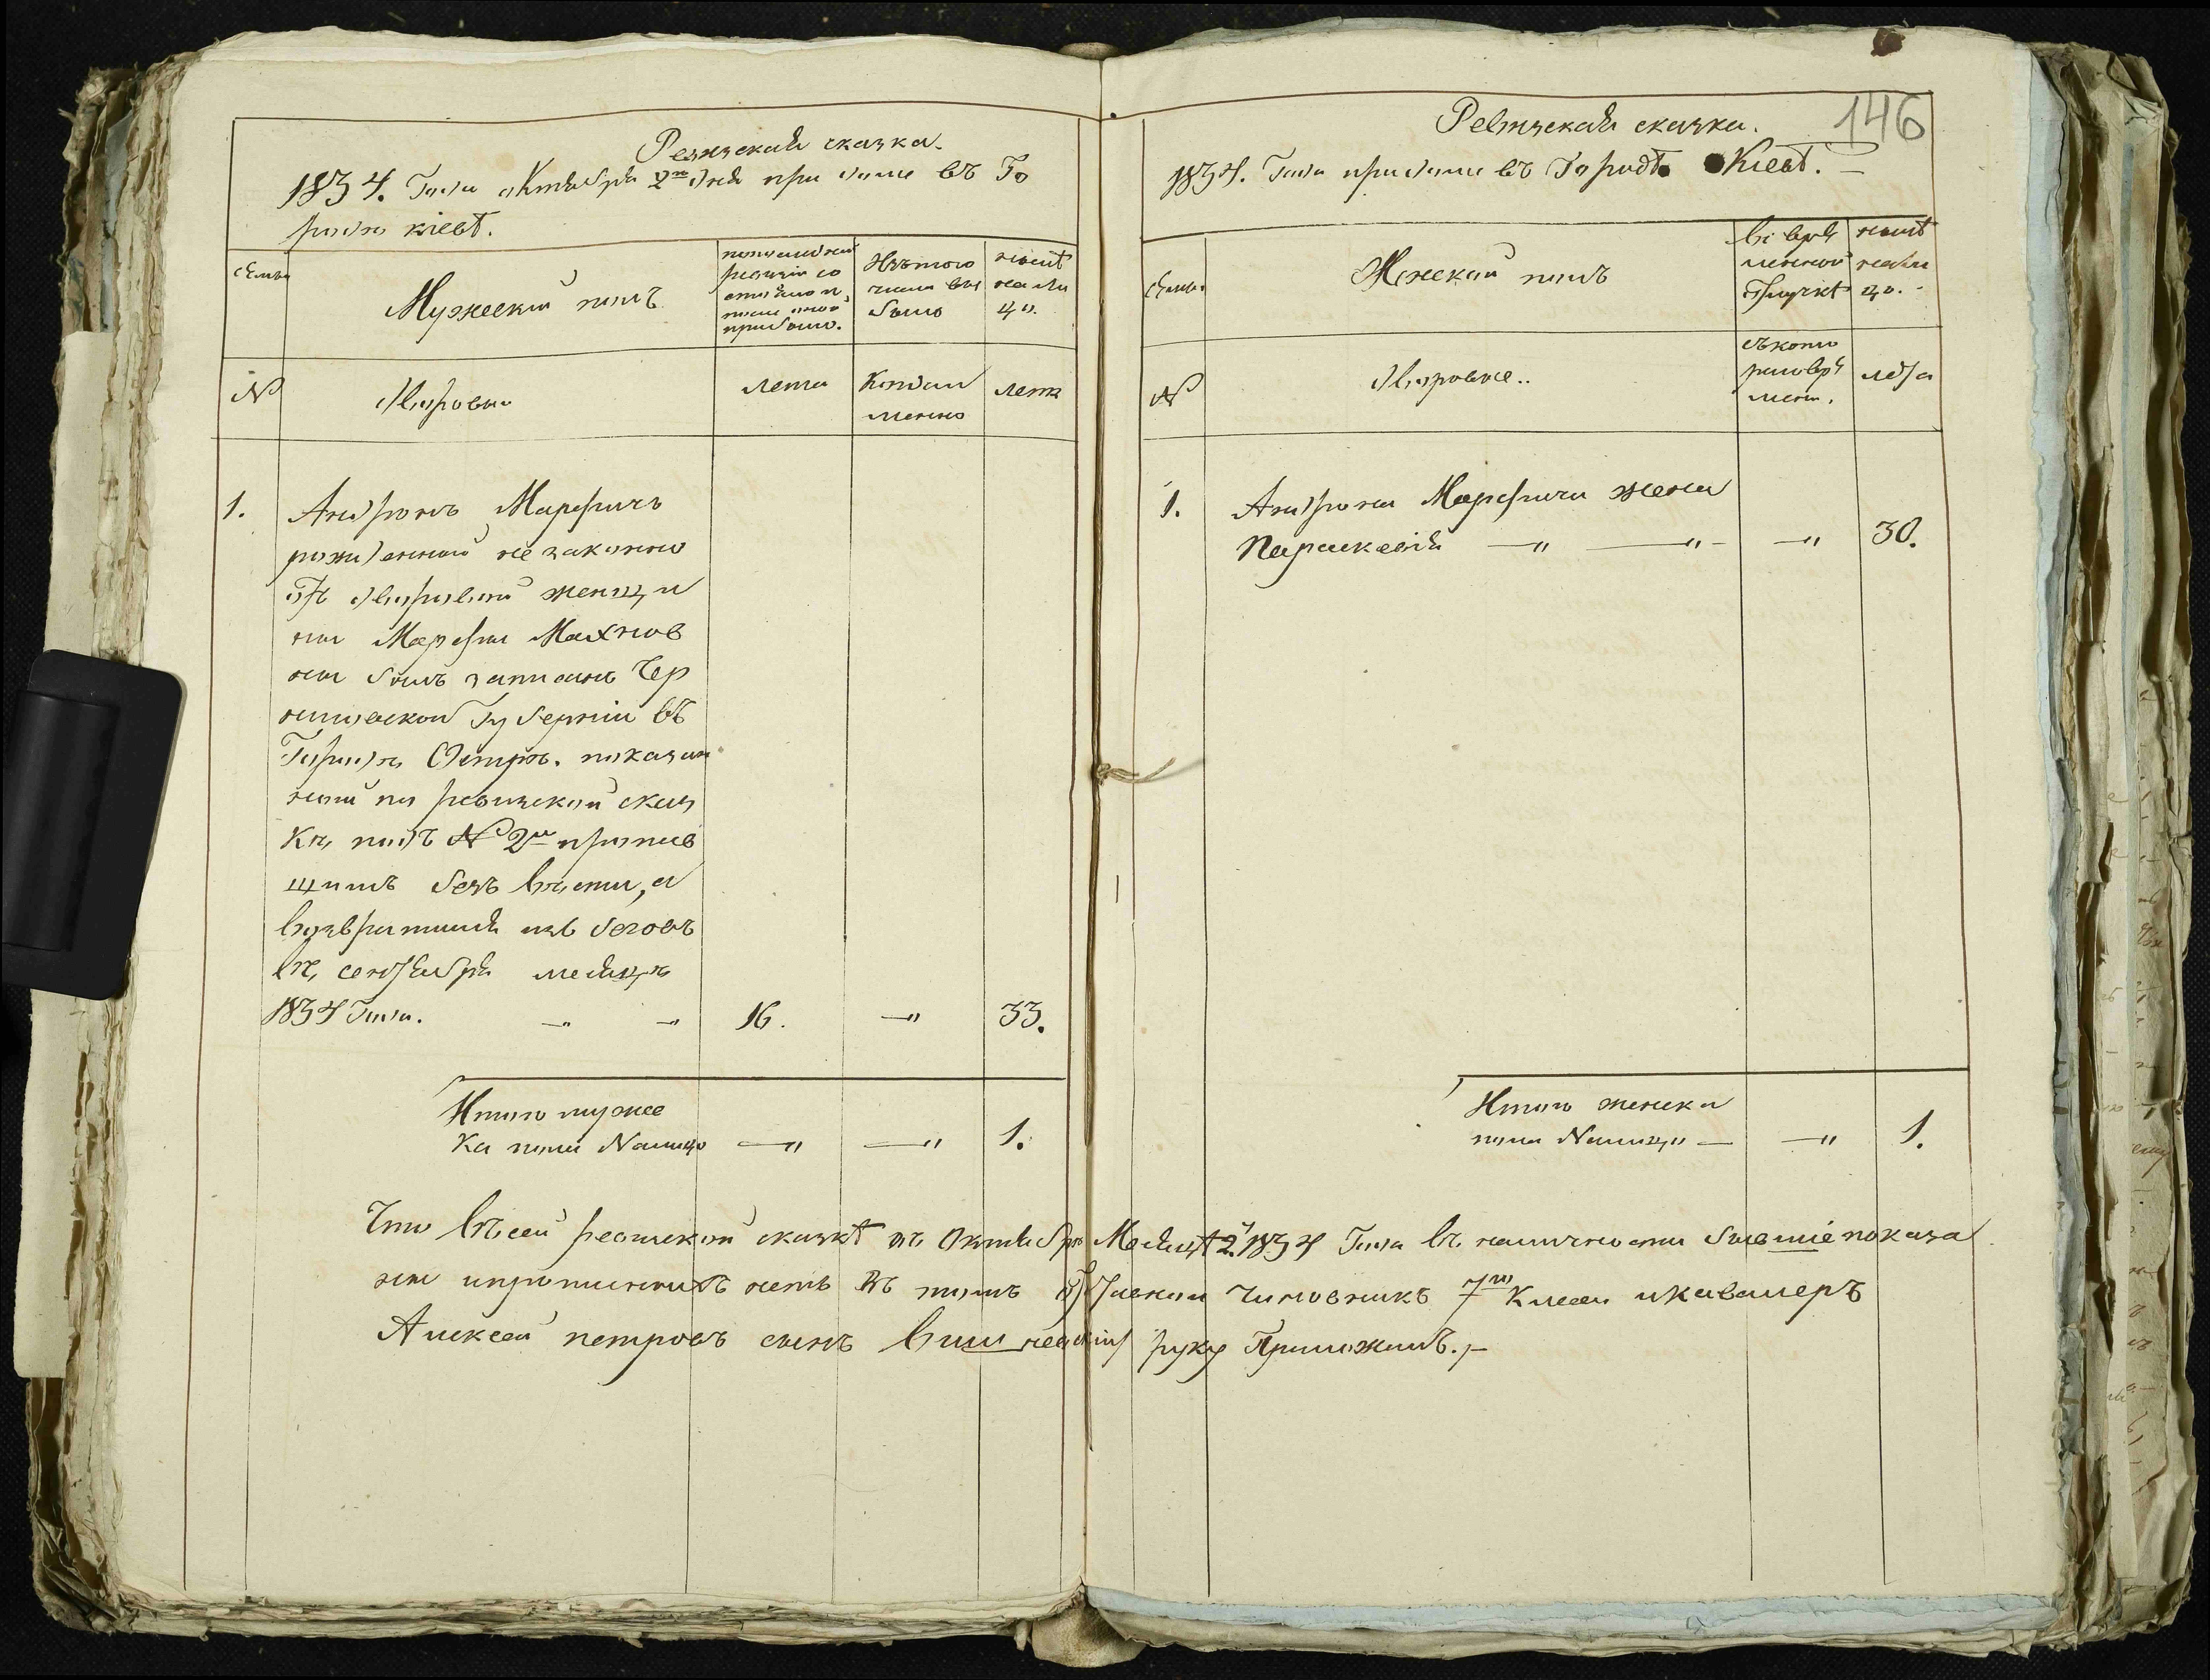 Ревизская сказка.
1834. Года октября 2го дня при доме въ Го
роде киевѣ.
семьи
Мужеский полъ
по последней
ревизии со
стояло и
после того
прибыло.
Изъ того
числа вы
было
ныне
на ли
цо.
№
Дворовые
лета
Когда и
менно
лета
1.
Андронъ Марфичъ
рожденной не законно
отъ дворовой женщи
ны Марфы Махнов
ны былъ записанъ Чер
ниговской Губернии въ
Городе Остре. показан
ной по ревизской сказ
ке подъ № 2м пропив
щимъ безъ вести, а
возвратился изъ бегов
въ сентября месяце
1834 Года.
16.
33.
Итого мужес
ка пола Налицо
1.
Ревизская сказка.
146
1834. Года при доме въ Городѣ Киевѣ.
семьи
Женский полъ
Во вре
менной
отлучкѣ
ныне
на ли
цо.
№
Дворовые..
съ кото
раго вре
мени.
лета
1.
Андрона Марфича жена
Параскевия
30.
Итого женска
пола Налицо
1.
Что въ сей ревизской сказкѣ въ Октябре Месяцѣ 2 1834 Года въ наличности бывшие показа
ны и пропиленныхъ нетъ въ томъ чиновникъ 7го Класса и кавалеръ
Алексей петровъ сынъ Вишневский руку Приложилъ.